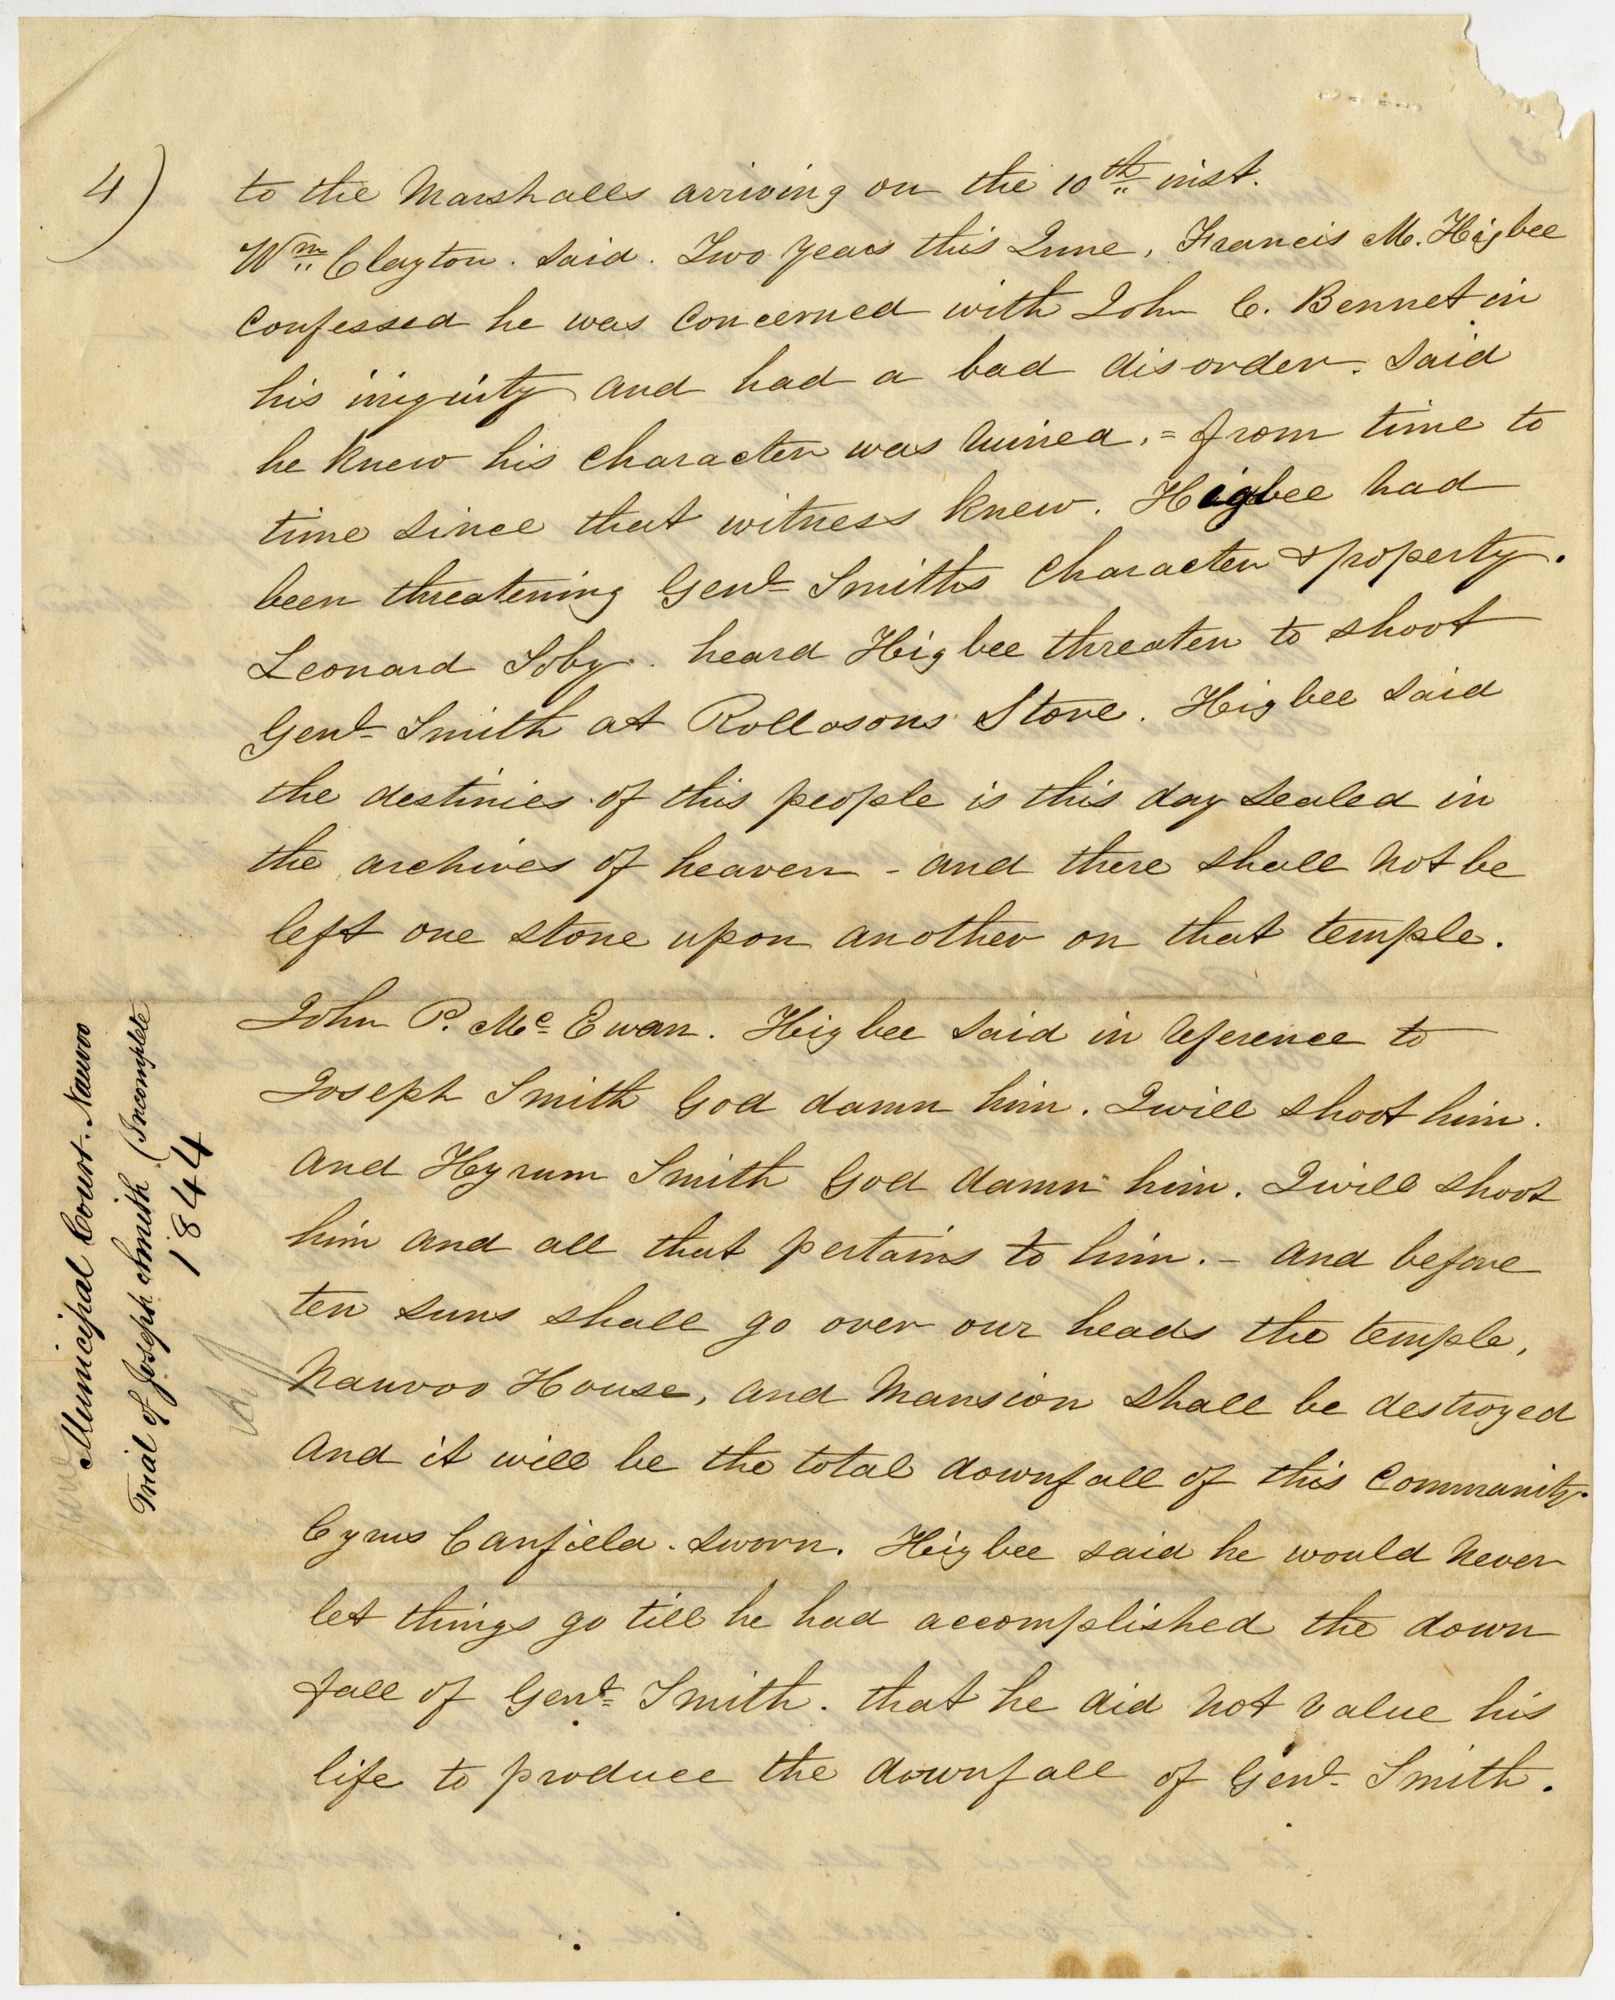 4)
to the Marshalls arriving on the 10th inst.
Wm Clayton. Said. Two years this June, Francis M. Higbee
Confessed he was Concerned with John C. Bennet in
his iniquity and had a bad disorder. Said
he knew his Character was Ruined. = from time to
time since that witness knew. Higbee had
been threatening Genl Smiths Character & property.
Leonard Soby. heard Higbee threaten to shoot
Genl Smith at Rollosons Store. Higbee said
the destinies of this people is this day sealed in
the archives of heaven - and there shall not be
left one stone upon another on that temple.
John P. McEwan. Higbee said in reference to
Joseph Smith God damn him. I will shoot him.
and Hyrum Smith God damn him. I will shoot
him and all that pertains to him. - and before
ten suns shall go over our heads the temple,
Nauvoo House, and Mansion shall be destroyed
and it will be the total downfall of this Community.
Cyrus Canfield. sworn. Higbee said he would never
let things go till he had accomplished the down
fall of Genl Smith. that he did not value his
life to produce the downfall of Genl Smith.
Municipal Court. Nauvoo
Trial of Joseph Smith (Incomplete
1844